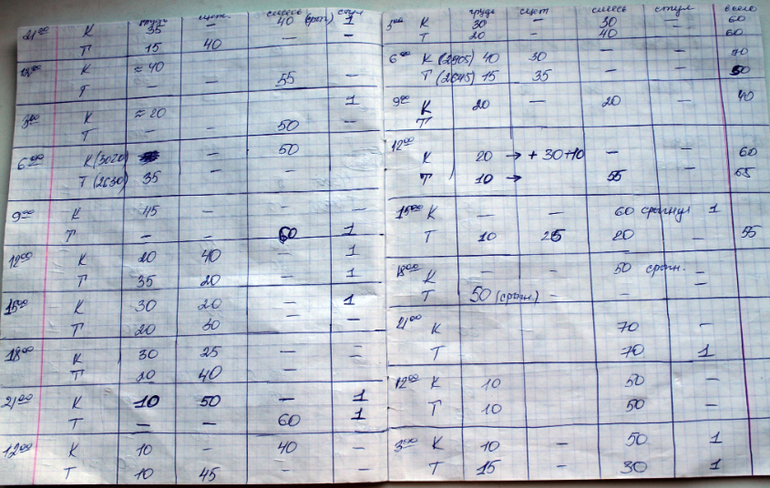 грудь сцеж. смесь стул
21 00 К 35 40 (срыг) 1
Т 15 40 — —
К ≈ 40 — — —
Т — — 55 —
3 00 К ≈ 20 1
Т — — 50 —
6 00 К (3020) — 50
Т (2630) 35 — — —
9 00 К 45 — — —
Т — — 60 1
12 00 К 20 40 — 1
Т 35 20 — 1
15 00 К 30 20 — 1
Т 20 30 — —
18 00 К 30 25 — —
Т 20 40 — —
21 00 К 10 50 — 1
Т — — 60 1
12 00 К 10 — 40 —
Т 10 45 — —
грудь сцеж смесь стул всего
3 00 К 30 — 30 — 60
Т 20 — 40 — 60
6 00 К (2905) 40 30 — — 70
Т (2645) 15 35 — — 50
9 00 К 20 — 20 — 40
Т
12 00 К 20 → + 30+10 — — 60
Т 10 → 55 — 65
15 00 К — — 60 срыгнул 1
Т 10 25 20 — 55
18 00 К — — 50 срыгн. —
Т 50 (срыгн.) — — —
21 00 К 70 —
Т 70 1
12 00 К 10 50 —
Т 10 50 —
3 00 К 10 — 50 1
Т 15 — 30 1